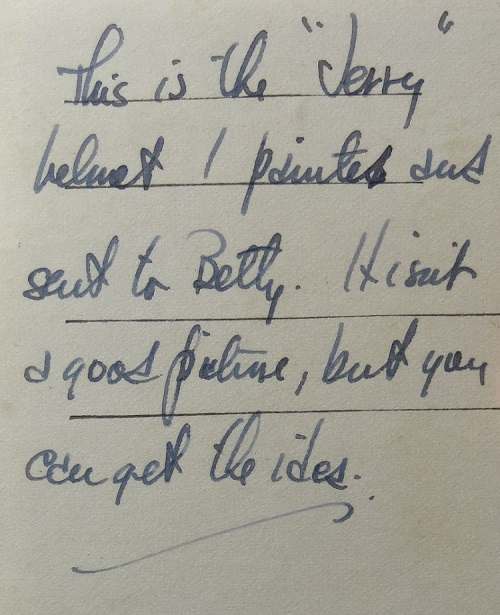 This is the "Jerry"
helmet I painted and
sent to Betty. It isn't
a good picture, but you
can get the idea.